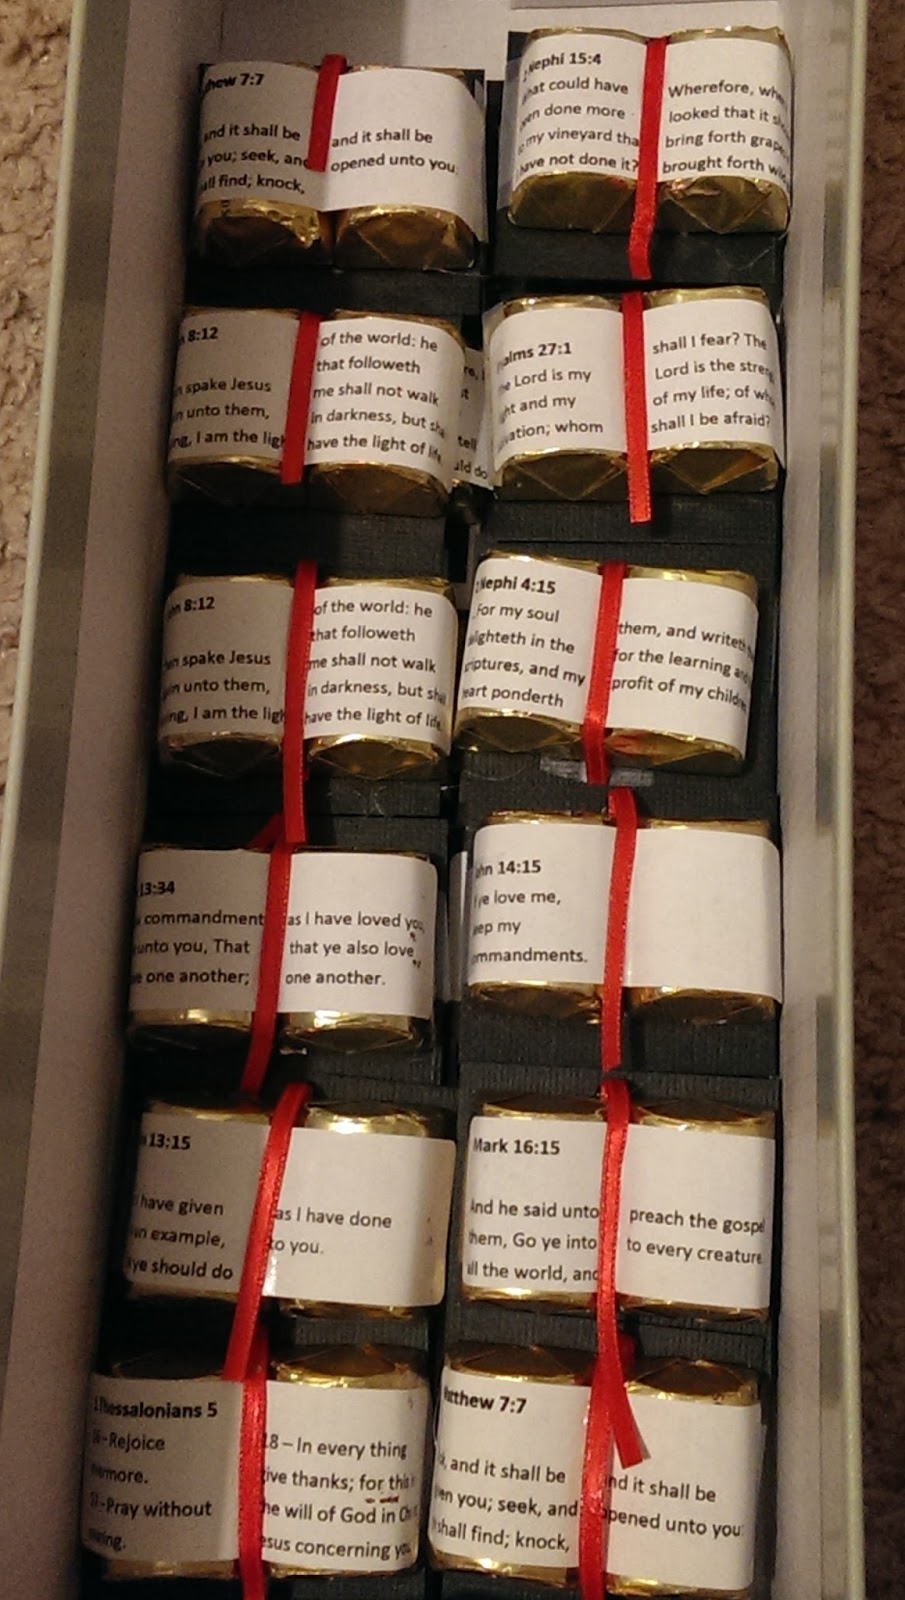 7:7
and it shall be
you; seek, and
find; knock,
and it shall be
opened unto you
Nephi 15:4
could have
done more
my vineyard
have not done it?
Wherefore,
looked that it
bring forth
brought forth
8:12
spake Jesus
unto them,
I am the
of the world: he
that followeth
me shall not walk
in darkness, but
have the light of
tell
do
27:1
Lord is my
and my
whom
shall I fear? The
Lord is the
of my life; of
shall I be afraid?
8:12
spake Jesus
unto them,
I am the
of the world: he
that followeth
me shall not walk
in darkness, but
have the light of
Nephi 4:15
For my soul
in the
and my
ponderth
them, and
for the learning
profit of my
13:34
commandment
unto you, That
one another;
as I have loved you,
that ye also love
one another.
14:15
ye love me,
my
13:15
have given
example,
ye should do
as I have done
to you.
Mark 16:15
And he said unto
them, Go ye into
all the world, and
preach the gospel
to every creature
Thessalonians 5
Rejoice
Pray without
18 – In every thing
give thanks; for this
the will of God in
concerning
Matthew 7:7
and it shall be
you; seek, and
shall find; knock,
and it shall be
opened unto you: